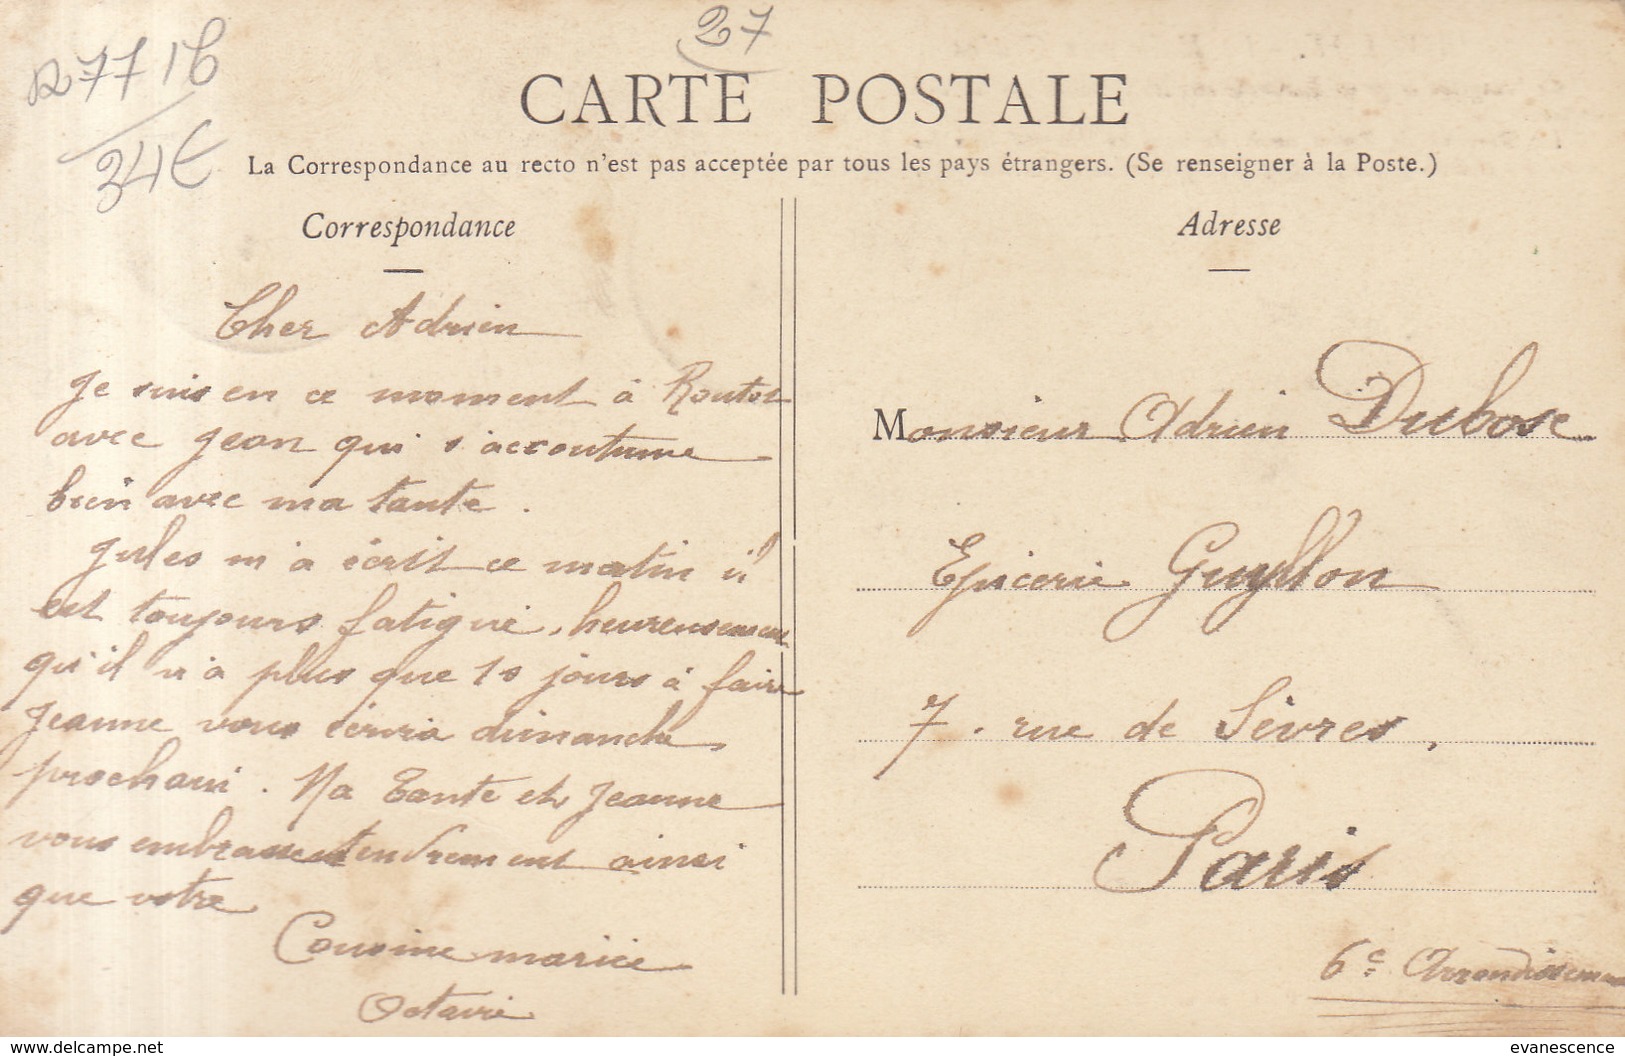 27
R7716
34€
CARTE POSTALE
La Correspondance au recto n'est pas acceptée par tous les pays étrangers. (Se renseigner à la Poste.)
Correspondance
Adresse
Cher Adrien
Je suis en ce moment à Routot
avec Jean qui s'accoutume
bien avec ma tante.
Jules m'a écrit ce matin il
est toujours fatigué, heureusement
qu'il n'a plus que 10 jours à faire
Jeanne vous écrira dimanche
prochain. Ma Tante et Jeanne
vous embrassent tendrement ainsi
que votre
Cousine marie
Octavie
Monsieur Adrien Dubosc
Epicerie Guyllon
7. rue de Sèvres,
Paris
6e Arrondissement
www.delcampe.net
evanescence